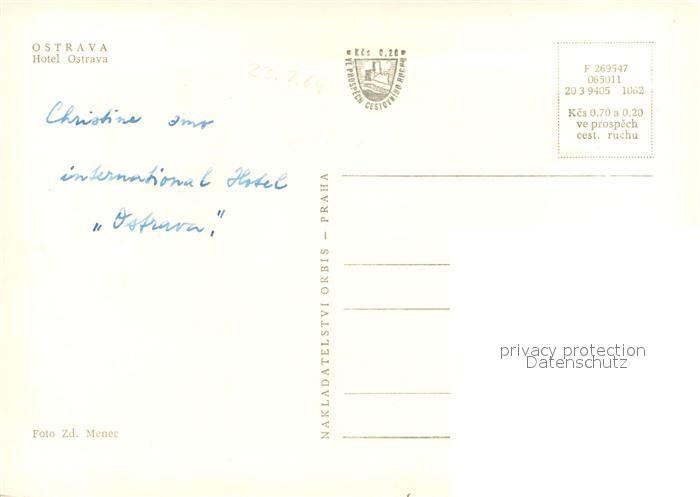 OSTRAVA
Hotel Ostrava
23.7.64
Kčs 0,20
VE PROSPĚCH CESTOVNÍHO RUCHU
F 269547
065011
20 3 9405 1062
Kčs 0.70 a 0.20
ve prospěch
cest. ruchu
Christine
international Hotel
„Ostrava."
NAKLADATELSTVÍ ORBIS — PRAHA
privacy protection
Datenschutz
Foto Zd. Menec